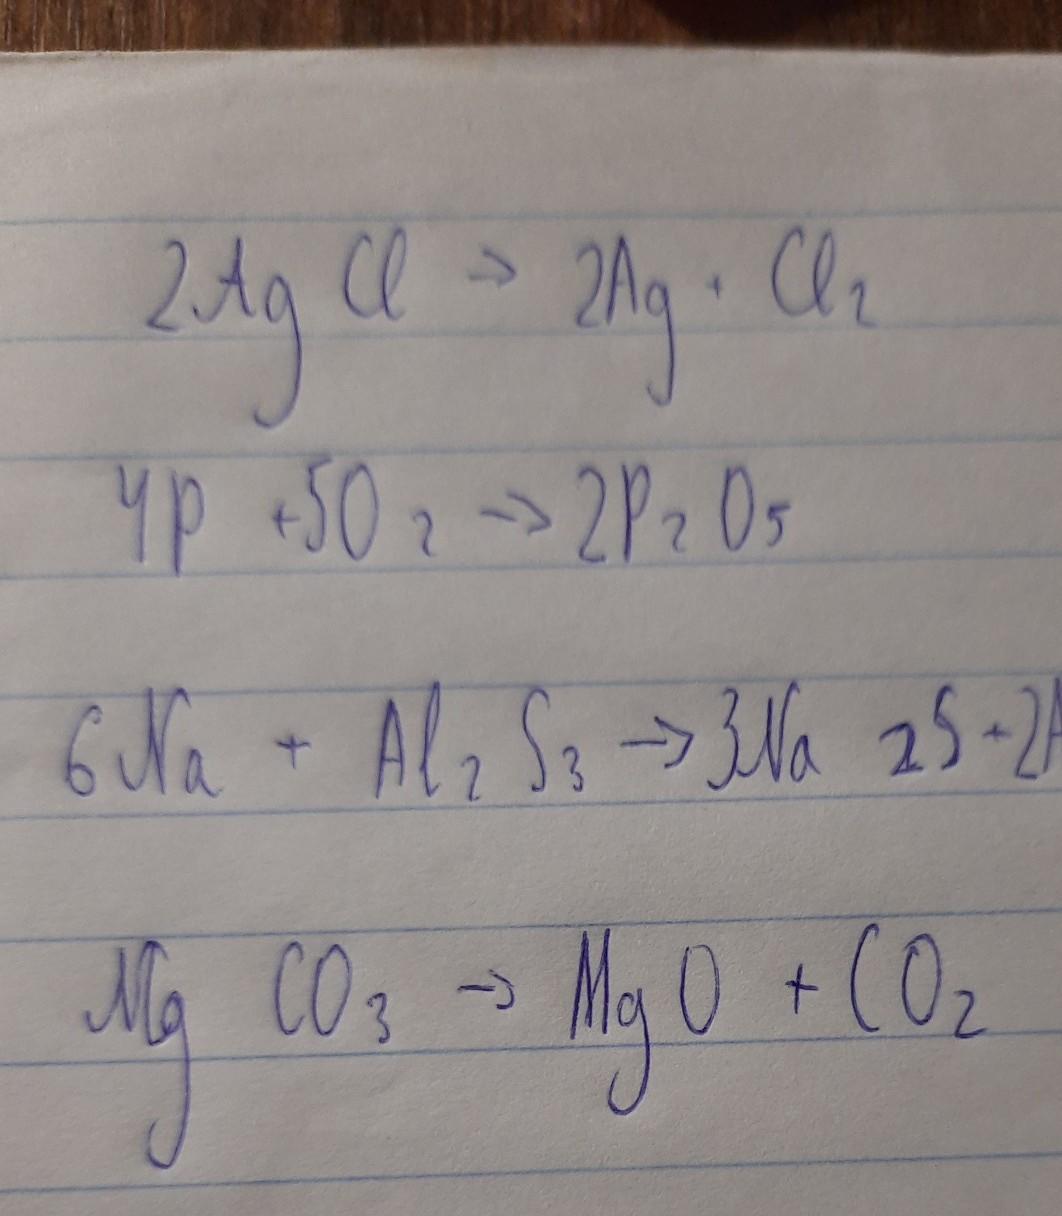 2AgCl → 2Ag + Cl₂
4P + 5O₂ → 2P₂O₅
6Na + Al₂S₃ → 3Na₂S + 2A
MgCO₃ → MgO + CO₂